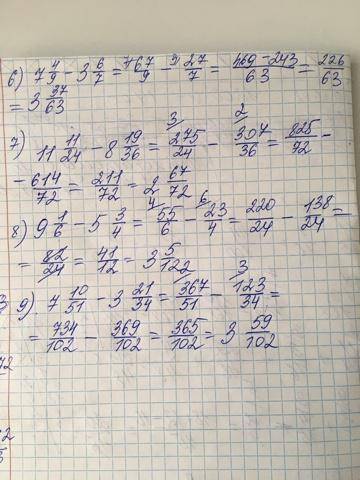 6) 7 4/9 - 3 6/7 = 7 67/9 - 9 27/7 = 469-243/63 = 226/63
= 3 37/63
7) 11 11/24 - 8 19/36 = 3 275/24 - 2 307/36 = 825/72 -
- 614/72 = 211/72 = 2 67/72
8) 9 1/6 - 5 3/4 = 4 55/6 - 6 23/4 = 220/24 - 138/24 =
= 82/24 = 41/12 = 3 5/12
9) 7 10/51 - 3 21/34 = 2 367/51 - 3 123/34 =
= 734/102 - 369/102 = 365/102 = 3 59/102